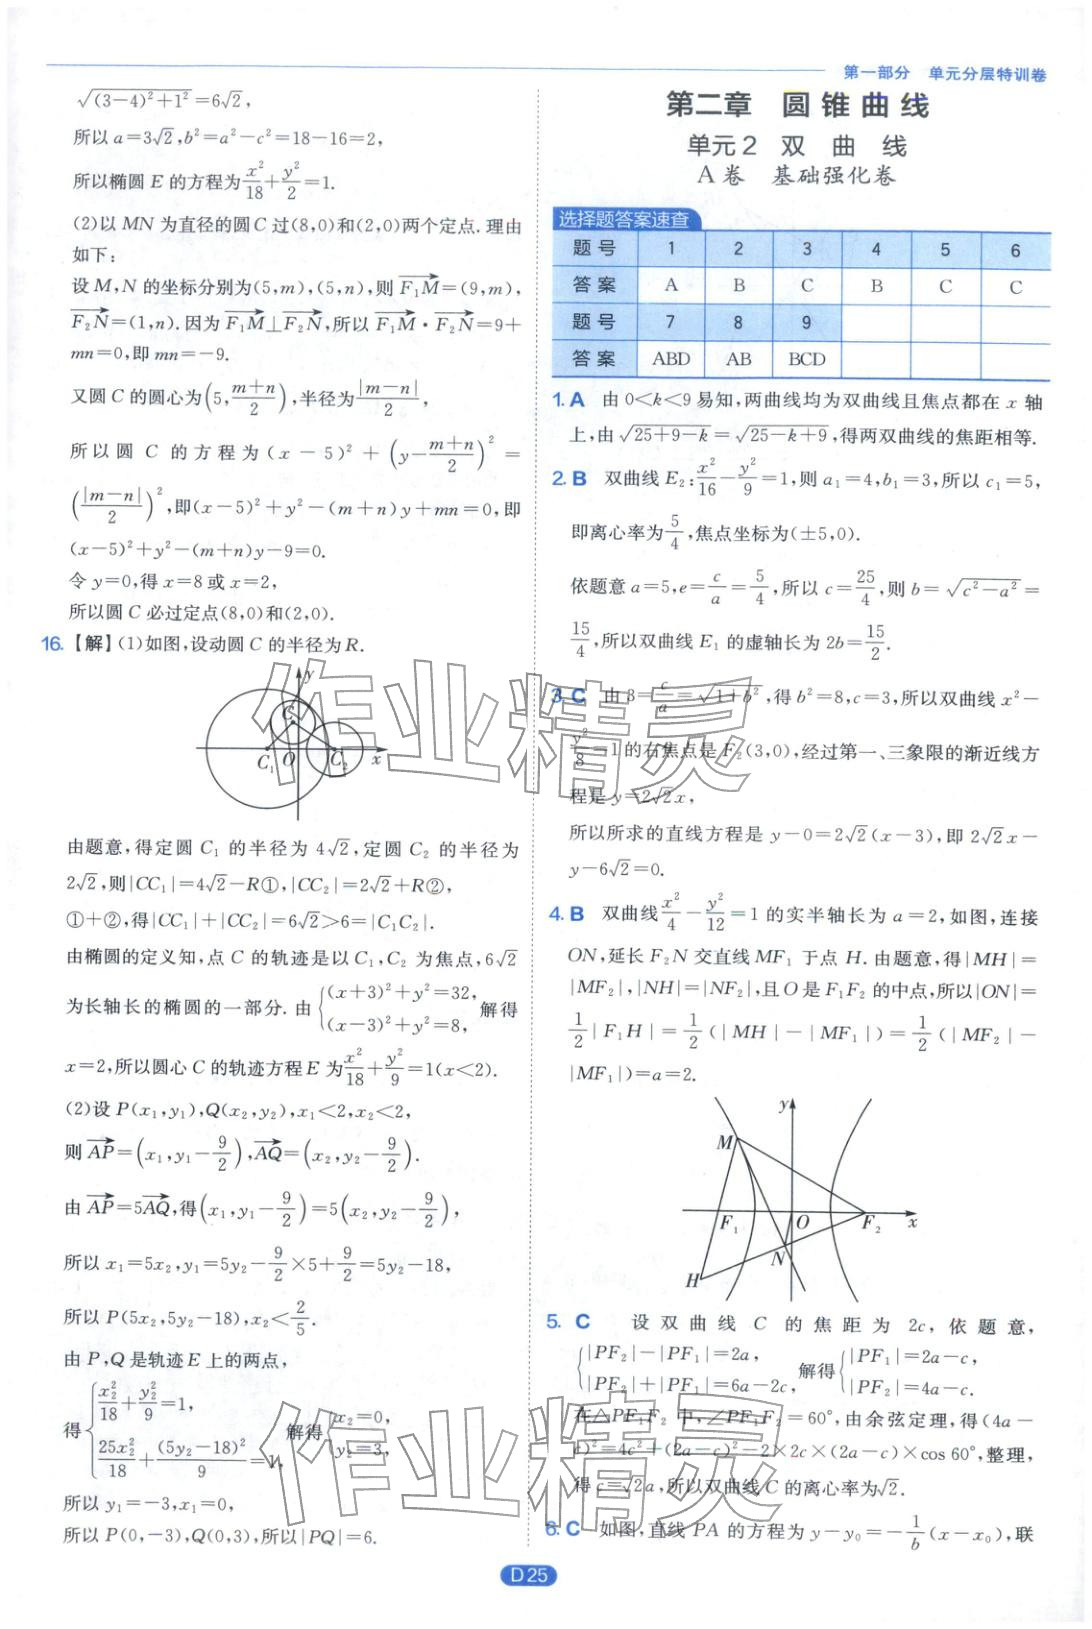 第一部分 单元分层特训卷
√(3-4)²+1²=6√2,
所以 a=3√2,b²=a²-c²=18-16=2,
所以椭圆 E 的方程为x²/18+y²/2=1.
(2)以 MN 为直径的圆 C 过(8,0)和(2,0)两个定点.理由
如下:
设 M,N 的坐标分别为(5,m),(5,n),则F₁M→=(9,m),
F₂N→=(1,n).因为F₁M→⊥F₂N→,所以F₁M→·F₂N→=9+
mn=0,即 mn=-9.
又圆 C 的圆心为(5,(m+n)/2),半径为|m-n|/2,
所以圆 C 的方程为(x-5)²+(y-(m+n)/2)²=
(|m-n|/2)²,即(x-5)²+y²-(m+n)y+mn=0,即
(x-5)²+y²-(m+n)y-9=0.
令 y=0,得 x=8或 x=2,
所以圆 C 必过定点(8,0)和(2,0).
16.【解】(1)如图,设动圆 C 的半径为 R.
y
C
C₁ O C₂ x
由题意,得定圆 C₁ 的半径为 4√2,定圆 C₂ 的半径为
2√2,则|CC₁|=4√2-R①,|CC₂|=2√2+R②,
①+②,得|CC₁|+|CC₂|=6√2>6=|C₁C₂|.
由椭圆的定义知,点 C 的轨迹是以 C₁,C₂ 为焦点,6√2
为长轴长的椭圆的一部分.由{(x+3)²+y²=32, (x-3)²+y²=8, 解得
x=2,所以圆心 C 的轨迹方程 E 为x²/18+y²/9=1(x<2).
(2)设 P(x₁,y₁),Q(x₂,y₂),x₁<2,x₂<2,
则AP→=(x₁,y₁-9/2),AQ→=(x₂,y₂-9/2).
由AP→=5AQ→,得(x₁,y₁-9/2)=5(x₂,y₂-9/2),
所以 x₁=5x₂,y₁=5y₂-9/2×5+9/2=5y₂-18,
所以 P(5x₂,5y₂-18),x₂<2/5.
由 P,Q 是轨迹 E 上的两点,
得{x₂²/18+y₂²/9=1, 25x₂²/18+(5y₂-18)²/9=1, 解得{x₂=0, y₂=3,
所以 y₁=-3,x₁=0,
所以 P(0,-3),Q(0,3),所以|PQ|=6.
第二章 圆锥曲线
单元2 双曲线
A卷 基础强化卷
选择题答案速查
题号 1 2 3 4 5 6
答案 A B C B C C
题号 7 8 9
答案 ABD AB BCD
1. A 由 0<k<9 易知,两曲线均为双曲线且焦点都在 x 轴
上,由√25+9-k=√25-k+9,得两双曲线的焦距相等.
2. B 双曲线 E₂:x²/16-y²/9=1,则 a₁=4,b₁=3,所以 c₁=5,
即离心率为5/4,焦点坐标为(±5,0).
依题意 a=5,e=c/a=5/4,所以 c=25/4,则 b=√c²-a²=
15/4,所以双曲线 E₁ 的虚轴长为 2b=15/2.
3. C 由 3=c/a=√1+b²,得 b²=8,c=3,所以双曲线 x²-
y²/8=1的右焦点是 F₂(3,0),经过第一、三象限的渐近线方
程是 y=2√2x,
所以所求的直线方程是 y-0=2√2(x-3),即 2√2x-
y-6√2=0.
4. B 双曲线x²/4-y²/12=1 的实半轴长为 a=2,如图,连接
ON,延长 F₂N 交直线 MF₁ 于点 H.由题意,得|MH|=
|MF₂|,|NH|=|NF₂|,且 O 是 F₁F₂ 的中点,所以|ON|=
1/2|F₁H|=1/2(|MH|-|MF₁|)=1/2(|MF₂|-
|MF₁|)=a=2.
y
M
F₁ O F₂ x
N
H
5. C 设双曲线 C 的焦距为 2c,依题意,
{|PF₂|-|PF₁|=2a, |PF₂|+|PF₁|=6a-2c, 解得{|PF₁|=2a-c, |PF₂|=4a-c.
在△PF₁F₂ 中,∠PF₁F₂=60°,由余弦定理,得(4a-
c)²=4c²+(2a-c)²-2×2c×(2a-c)×cos 60°,整理,
得 c=√2a,所以双曲线 C 的离心率为√2.
6. C 如图,直线 PA 的方程为 y-y₀=-1/b(x-x₀),联
D25
作业精灵
作业精灵